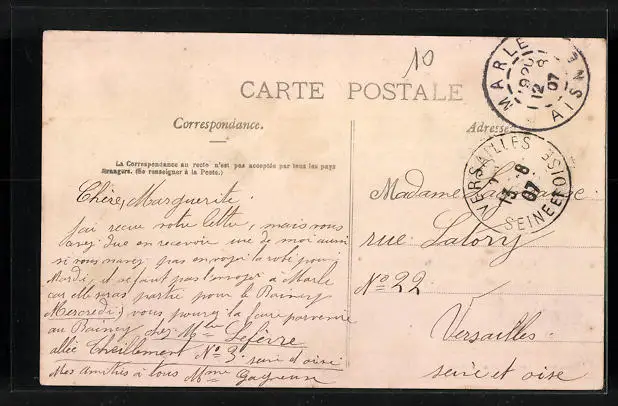 10
CARTE POSTALE
MARLE AISNE
12 8 07
VERSAILLES SEINE ET OISE
13 - 8 07
Correspondance.
Adresse
La Correspondance au recto n'est pas acceptée par tous les pays
étrangers. (Se renseigner à la Poste.)
Chère, Marguerite.
Jai reçue votre lettre, mais vous
avez due en recevoir une de moi aussi
si vous navez pas envoyé la robe pour
Mardi, il ne faut pas l'envoyer à Marle
car elle pas partie pour le Rainey
Mercredi) vous pourez la faire parvenir
au Rainey chez Mme Lefèvre
allée Theillement No 3. seine d'oise
Mes amitiés à tous Mme
Madame
rue Latory
No 22
Versailles
seine et oise